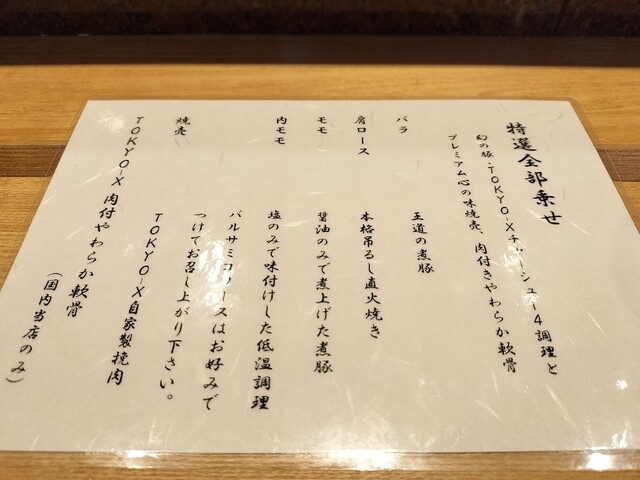 特選全部乗せ
幻の豚・TOKYO-Xチャーシュー4調理と
プレミアム心の味焼売、肉付きやわらか軟骨
バラ 王道の煮豚
肩ロース 本格吊るし直火焼き
モモ 醤油のみで煮上げた煮豚
内モモ 塩のみで味付けした低温調理
バルサミコソースはお好みで
つけてお召し上がり下さい。
焼売 TOKYO-X自家製挽肉
TOKYO-X 肉付やわらか軟骨
(国内当店のみ)